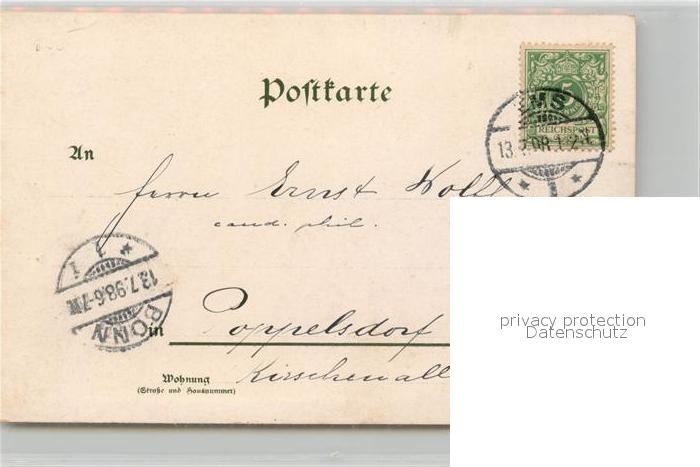 Postkarte
5
REICHSPOST
EMS
13.7.98.1-2N
1
An
Herrn Ernst Wolff
cand. phil.
1
13.7.98.6-7N
BONN
in Poppelsdorf
Wohnung
(Straße und Hausnummer)
Kirschenall
privacy protection
Datenschutz